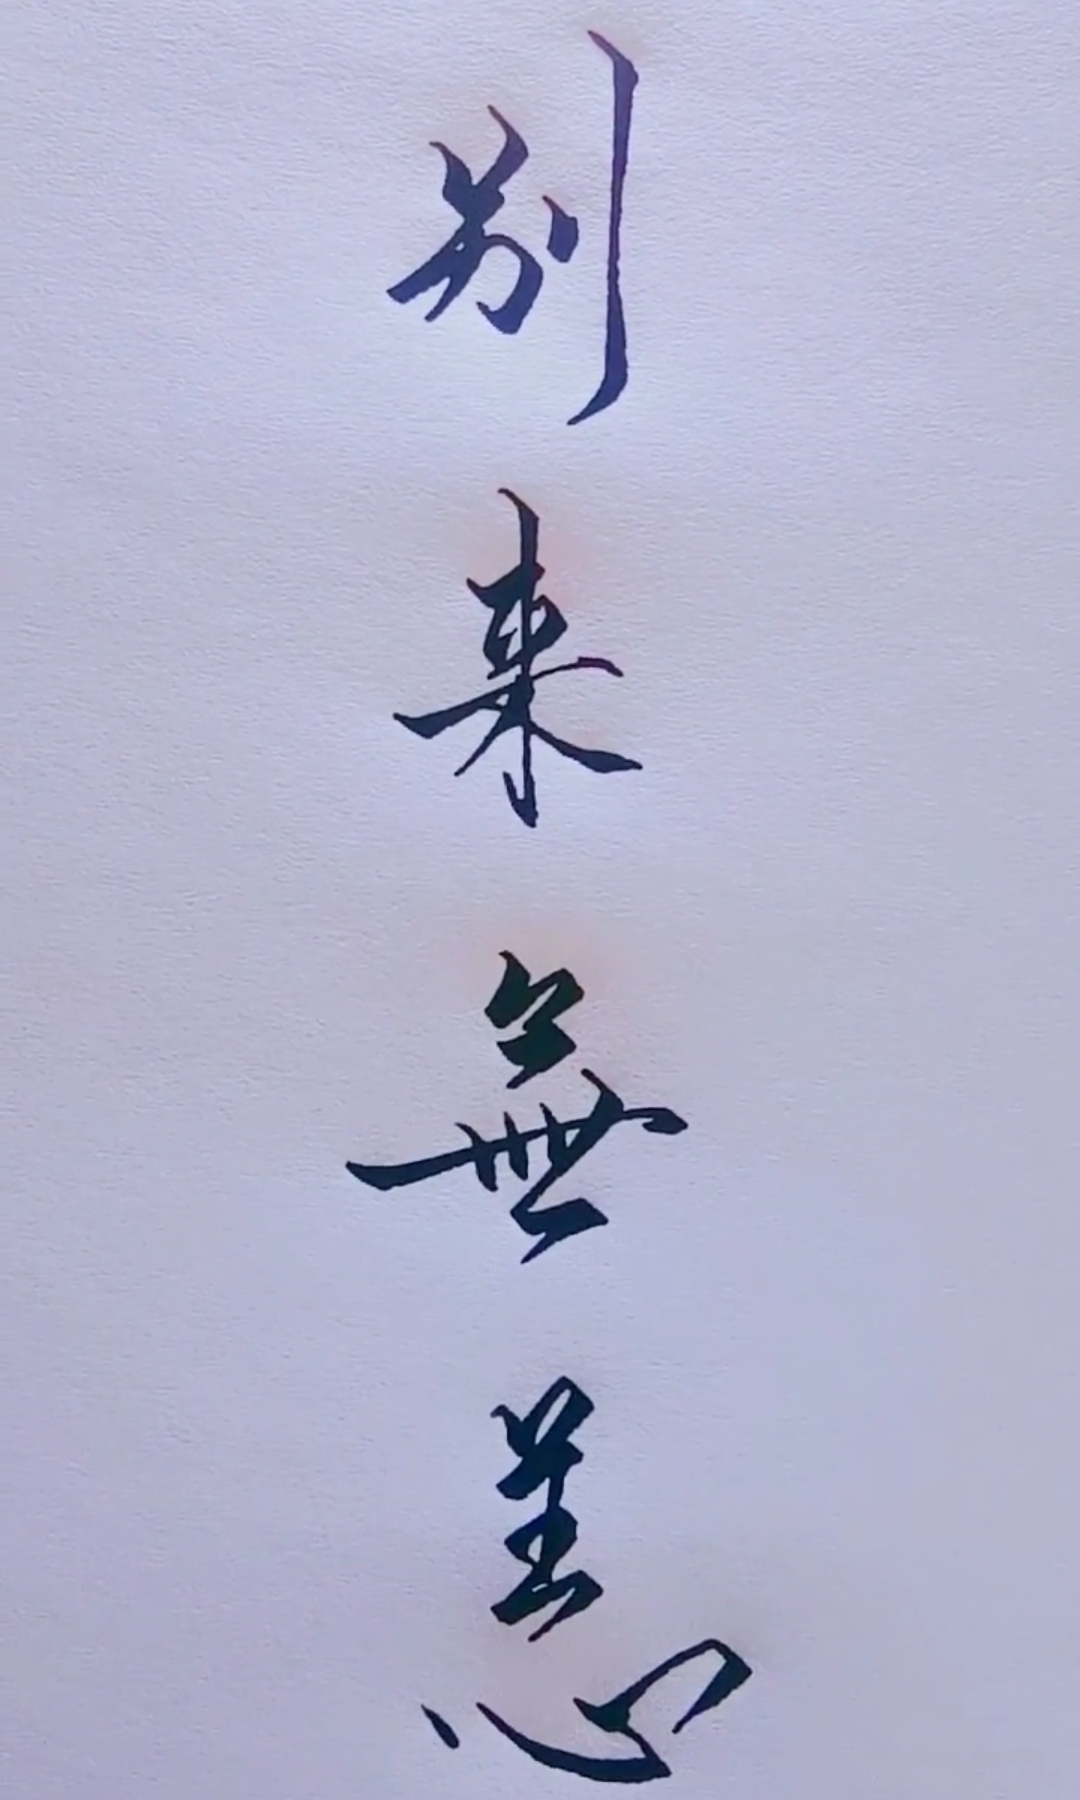 别来無恙